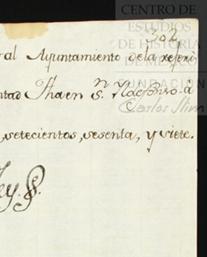 CENTRO DE
ESTUDIOS
DE HISTORIA
DE MÉXICO
FUNDACIÓN
Carlos Slim
302
al Ayuntamiento de la referi-
tad Jhaen Sn. Ildefonso a
setecientos, sesenta, y siete.